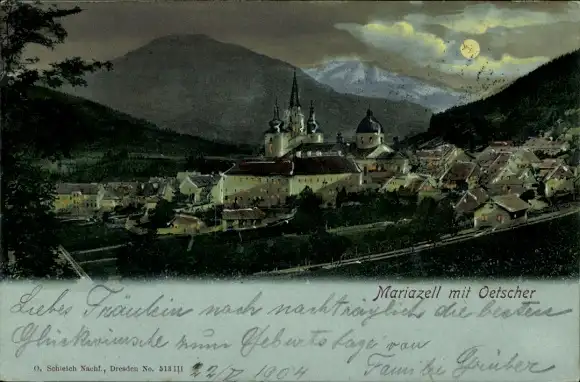 Mariazell mit Oetscher
Liebes Fräulein noch nachträglich die besten
Glückwünsche zum Geburtstage von
Familie Gruber
O. Schleich Nachf., Dresden No. 5131
22/V 1904